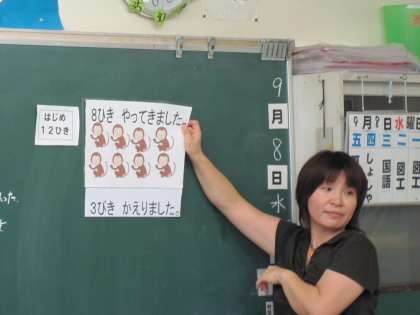 はじめ
12ひき
8ひき やってきました。
3びき かえりました。
9
月
8
日
水
9月9日水曜日
五四三二一
しょしゃ
国語
図工
図工